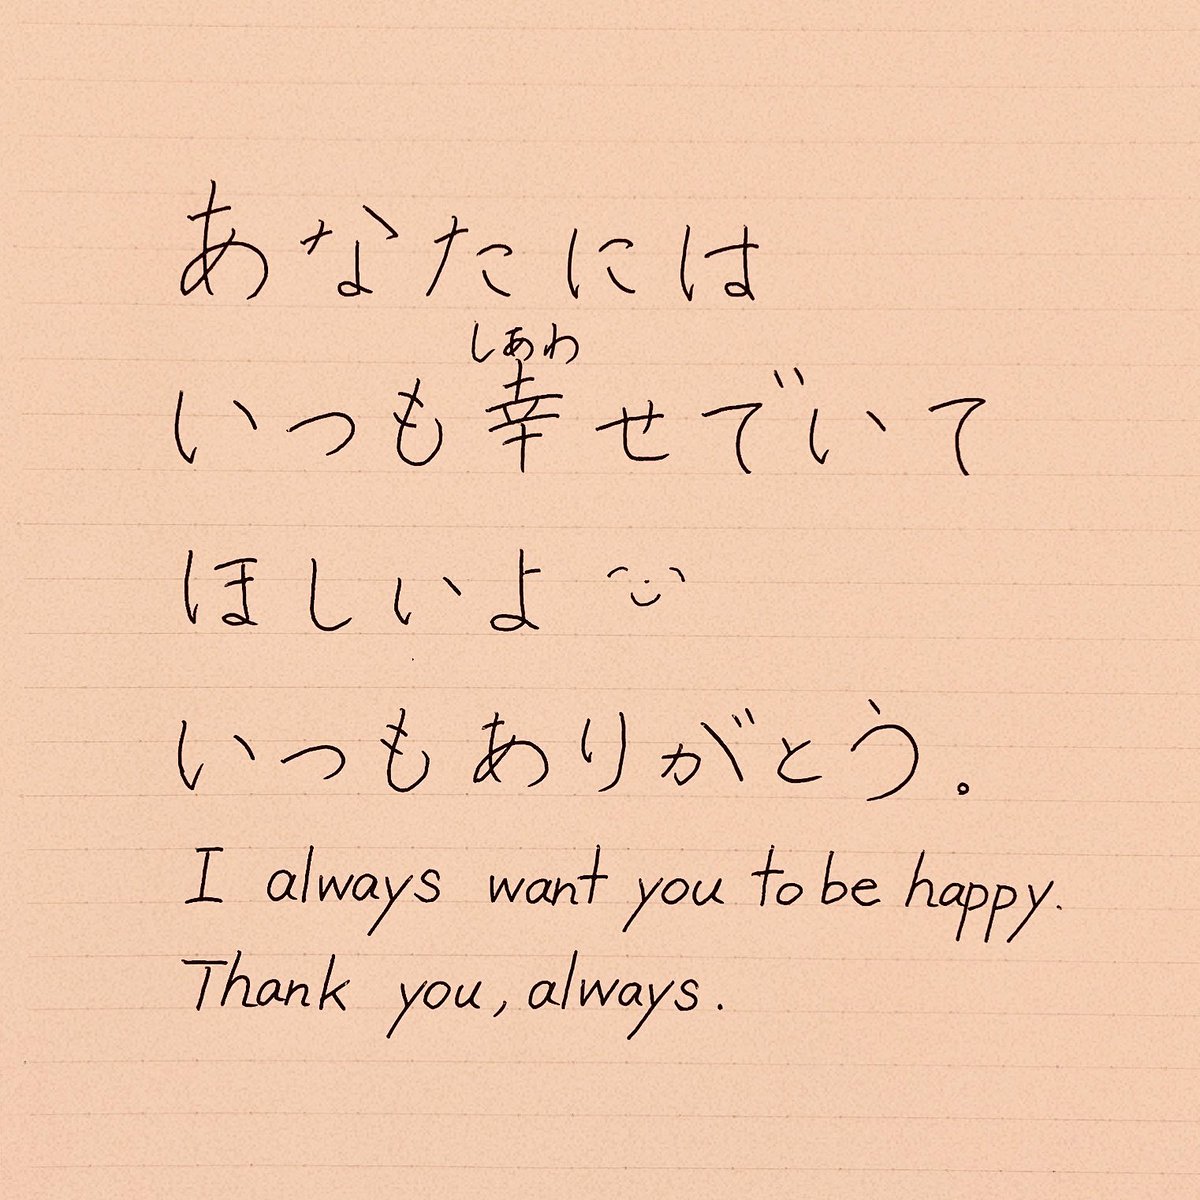 あなたには
しあわ
いつも幸せでいて
ほしいよ
いつもありがとう。
I always want you to be happy.
Thank you, always.